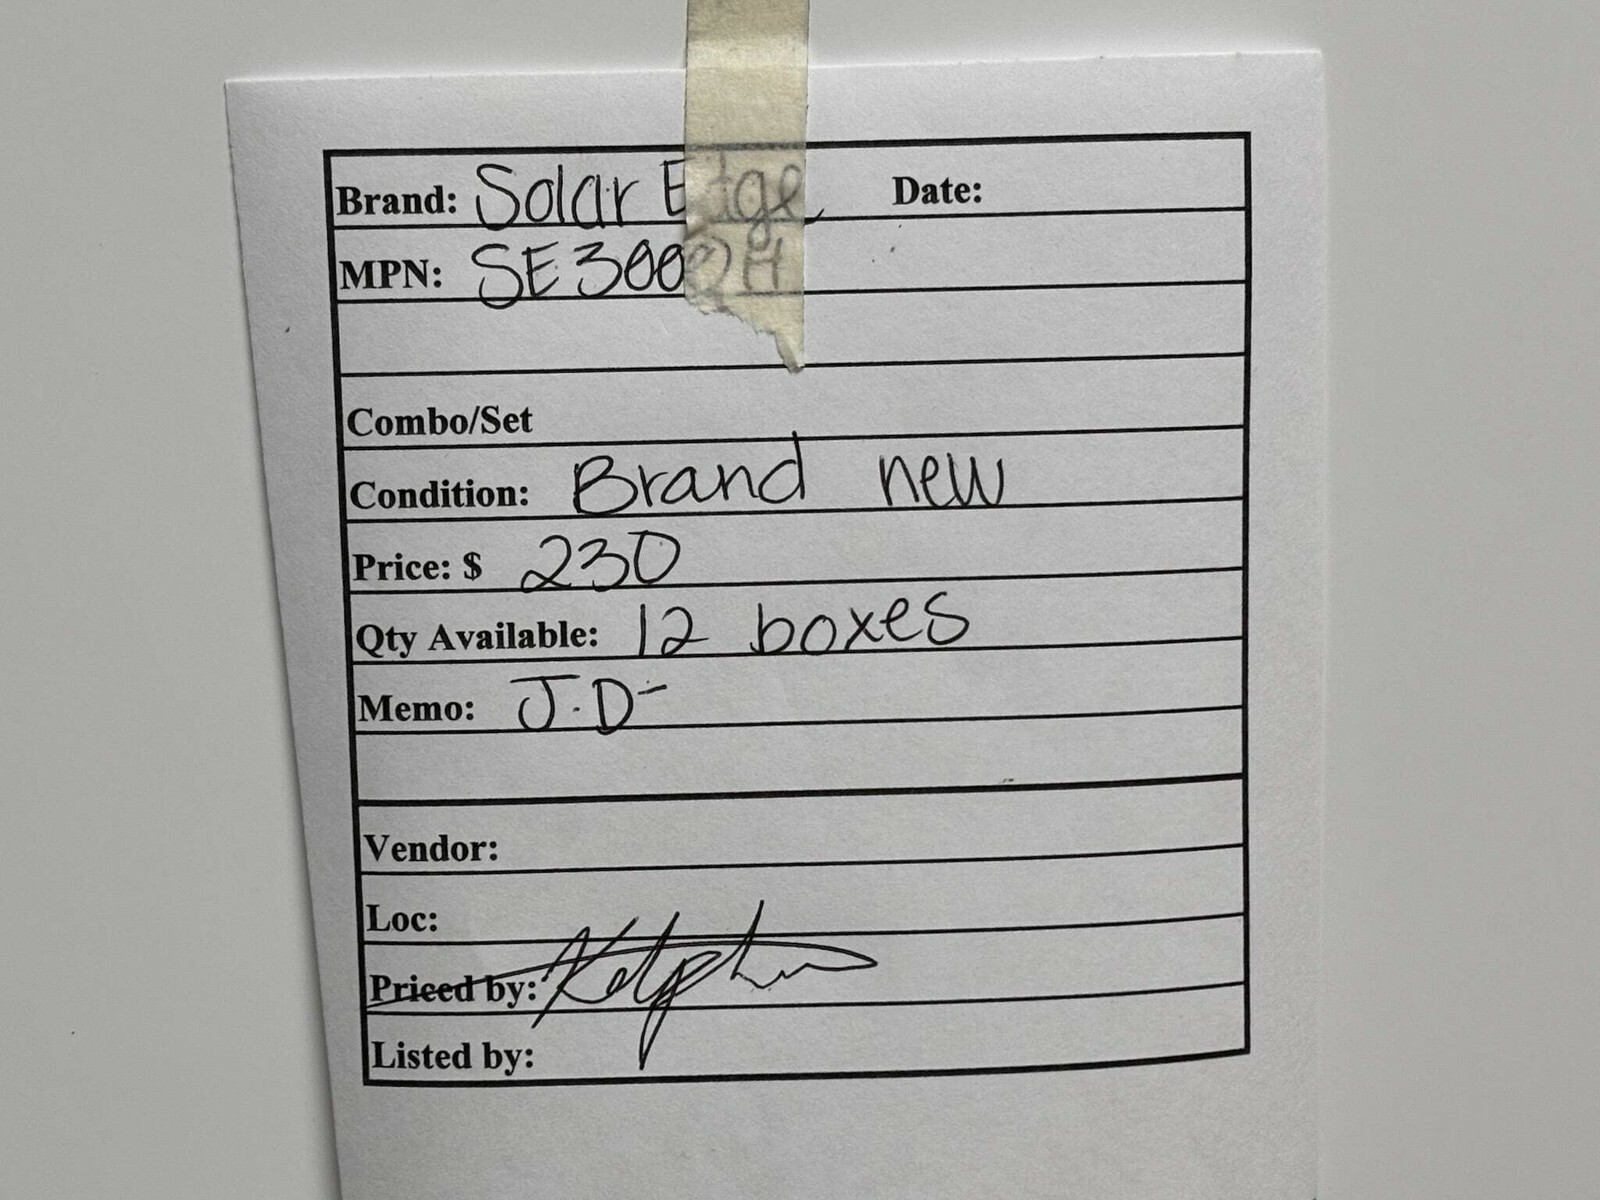 Brand: Solar Edge Date:
MPN: SE3000H
Combo/Set
Condition: Brand new
Price: $ 230
Qty Available: 12 boxes
Memo: J.D-
Vendor:
Loc:
Priced by:
Listed by: